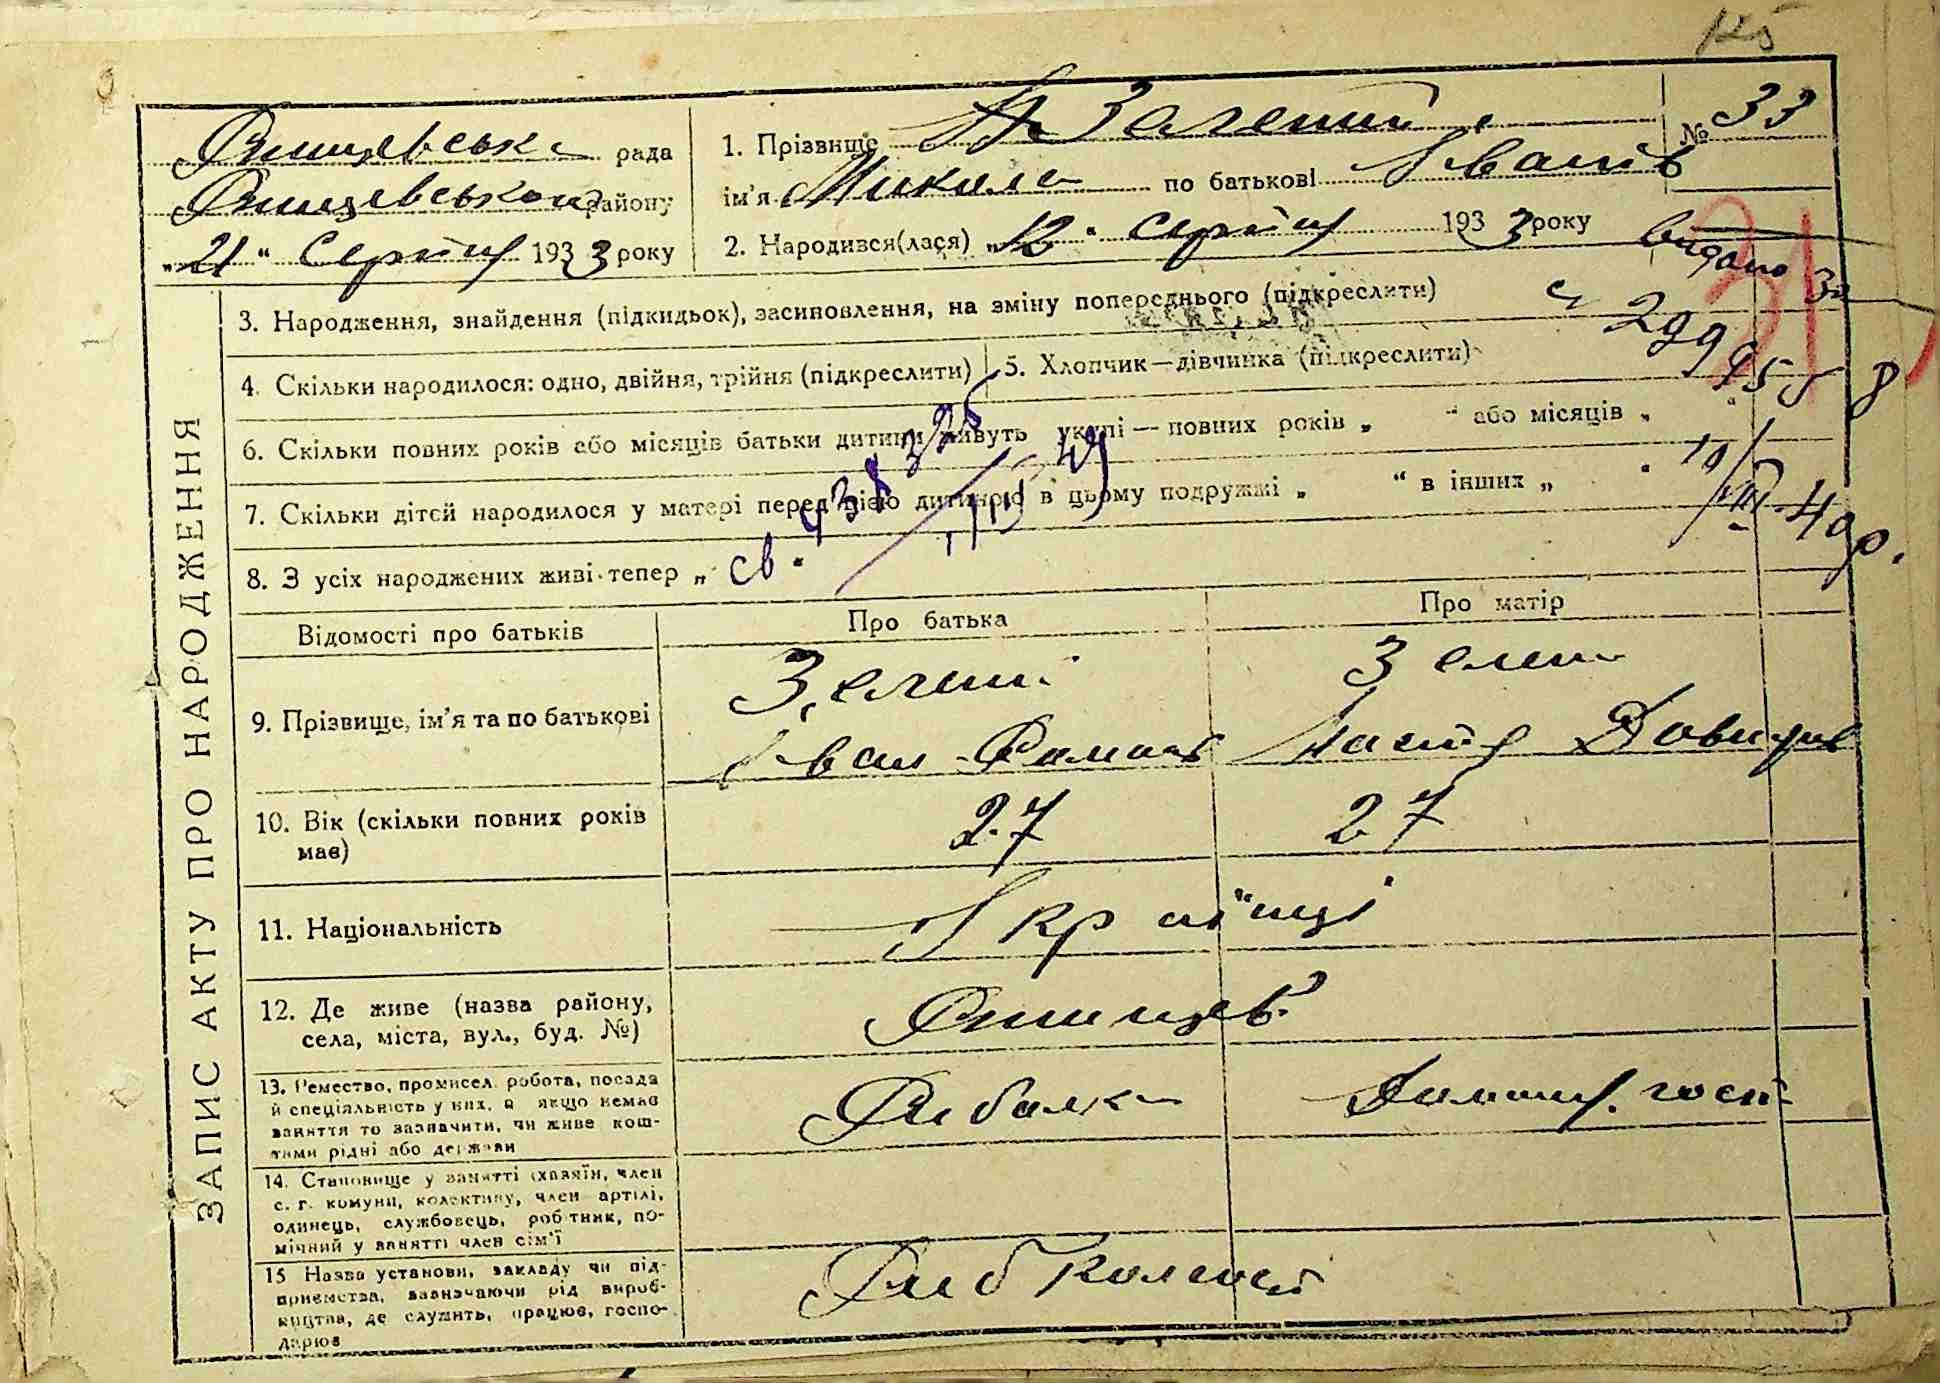 125
Ржищевська рада
Ржищевського району
„21“ Серпня 1933 року
1. Прізвище Зелений
№ 33
ім'я Микола по батькові Іванів
2. Народився(лася) „12“ серпня 1933 року
видано
31
ЗАПИС АКТУ ПРО НАРОДЖЕННЯ
3. Народження, знайдення (підкидьок), засиновлення, на зміну попереднього (підкреслити)
4. Скільки народилося: одно, двійня, трійня (підкреслити)
5. Хлопчик—дівчинка (підкреслити)
6. Скільки повних років або місяців батьки дитини живуть укупі — повних років „ “ або місяців „ “
7. Скільки дітей народилося у матері перед цією дитиною в цьому подружжі „ “ в інших „
8. З усіх народжених живі тепер „
св.
19/VIII-40р.
Відомості про батьків
Про батька
Про матір
9. Прізвище, ім'я та по батькові
Зелений
Зелена
Іван Романів
Настя Давидів
10. Вік (скільки повних років
має)
27
27
11. Національність
Українці
12. Де живе (назва району,
села, міста, вул., буд. №)
Ржищев
13. Ремество, промисел, робота, посада
й спеціяльність у них, а якщо немає
заняття то зазначити, чи живе кош-
тами рідні або держави
Рибалка
Домашн. госп
14. Становище у занятті (хазяїн, член
с. г. комуни, колективу, член артілі,
одинець, службовець, робітник, по-
мічний у занятті член сім'ї
15 Назва установи, закладу чи під-
приємства, зазначаючи рід вироб-
ництва, де служить, працює, госпо-
дарює
Рибколгосп